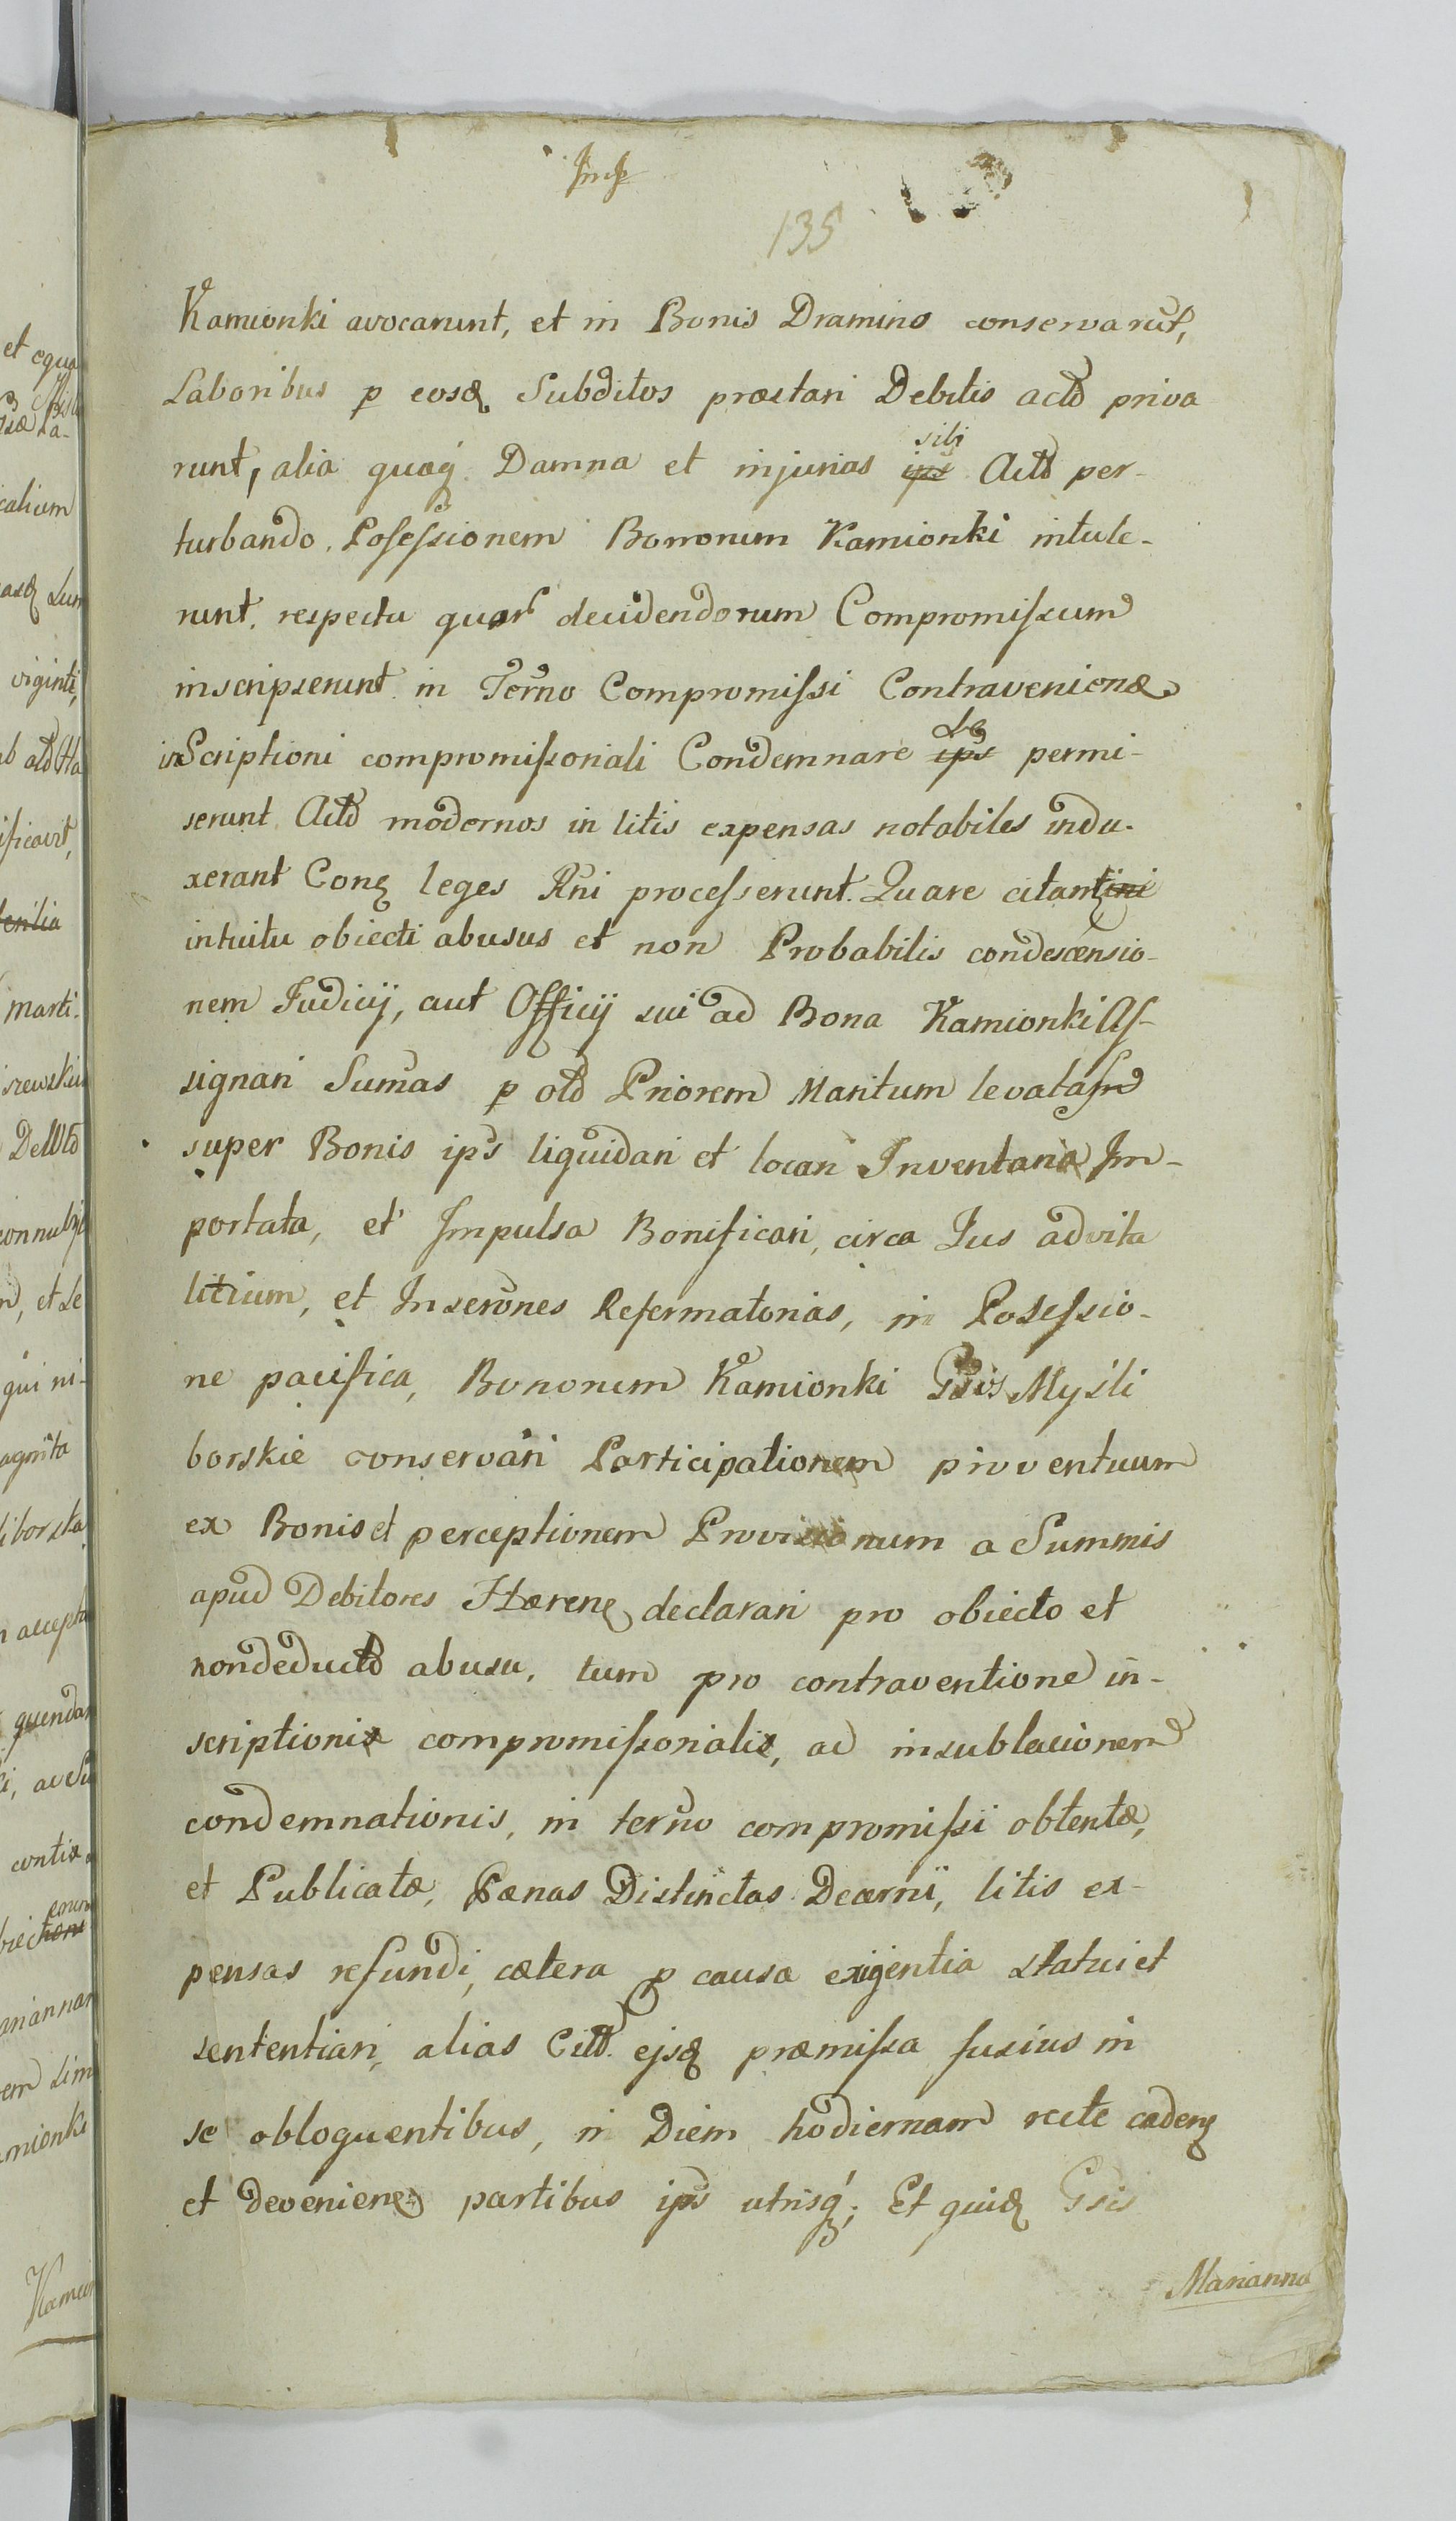 135
Kamionki avocarunt, et in Bonis Dramino conservarut,
Laboribus p eosq Subditos præstari Debitis actõ priva
runt, alia quoq Damna et injurias sibi ips Actõ per-
turbando Poseſsionem Bonorum Kamionki intule-
runt. respectu quor decidendorum Compromiſsum
inscripserunt in Terno Compromiſsi Contravenienæ
inScriptioni compromiſsoriali Condemnare se ips permi-
serunt Actõ modernos in litis expensas notabiles indu-
xerant Conq leges Rni proceſserunt. Quare citantini
intuitu obiecti abusus et non Probabilis condescensio-
nem Judicij, aut Officij sui ad Bona Kamionki Aſ-
signari Sumas p old Priorem Maritum levatas
super Bonis ips liquidari et locari Inventaria Im-
portata, et Impulsa Bonificari, circa Jus advita
litium, et Inserones Reformatorias, in Poseſsio-
ne pacifica, Bonorum Kamionki Gsis Myśli
borskie conservari Participationem proventuum
ex Bonis et perceptionem Provisionum a Summis
apud Debitores Hæren declarari pro obiecto et
nondeductõ abusu, tum pro contraventione in-
scriptionis compromiſsorialis, ac insublacionem
condemnationis, in terno compromiſsi obtentæ,
et Publicatæ, Pænas Distinctas Decerni, litis ex-
pensas refundi, cætera p causa exigentia statui et
sententiari, alias Citõ. ejsq præmiſsa fusius in
se obloquentibus, in Diem hodiernam recte caden
et Devenien partibus ips utrisq; Et quiq Gsis
Marianna